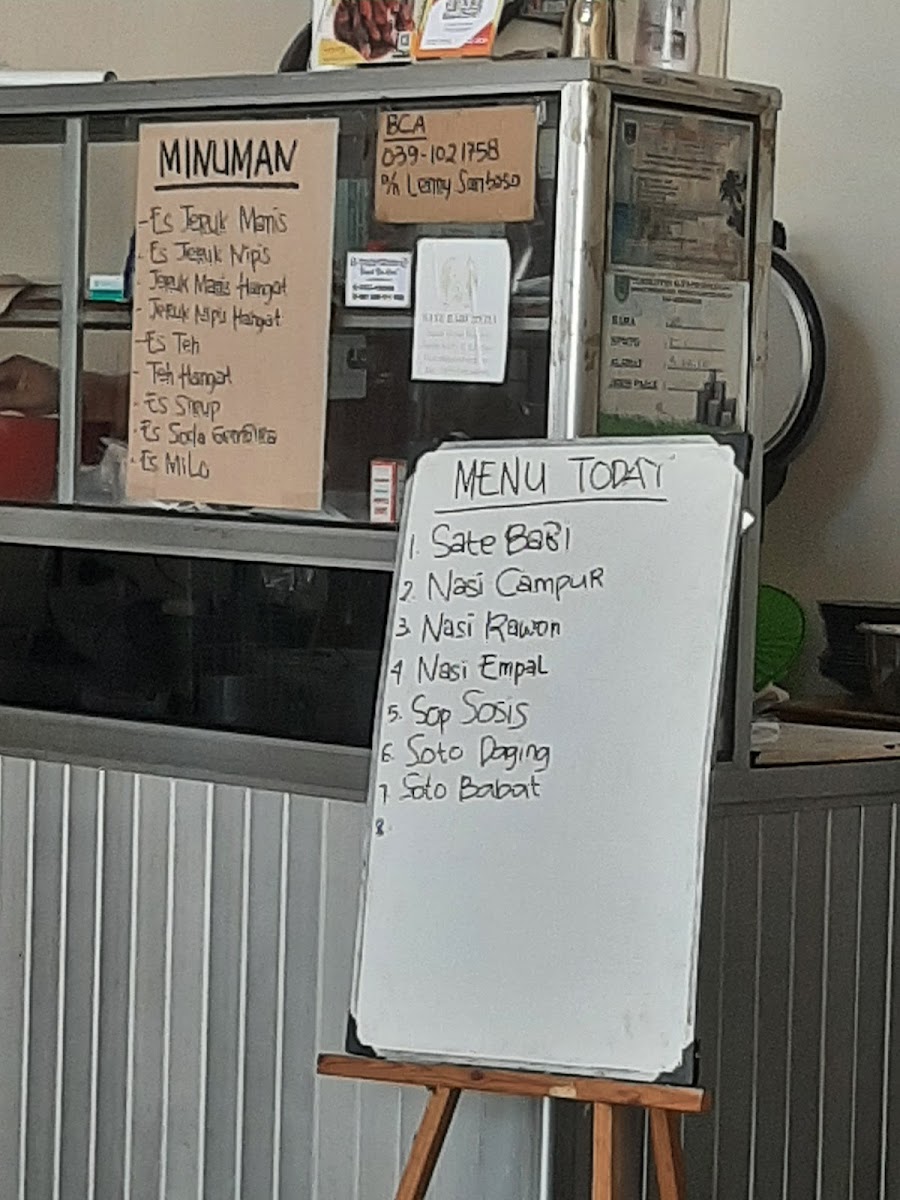 MINUMAN
- Es Jeruk Manis
- Es Jeruk Nipis
- Jeruk Manis Hangat
- Jeruk Nipis Hangat
- Es Teh
- Teh Hangat
- Es Sirup
- Es Soda Gembira
- Es Milo
BCA
039-1021758
a/n Lenny Santoso
MENU TODAY
1. Sate BaBi
2. Nasi Campur
3. Nasi Rawon
4 Nasi Empal
5. Sop Sosis
6. Soto Daging
7. Soto Babat
8.